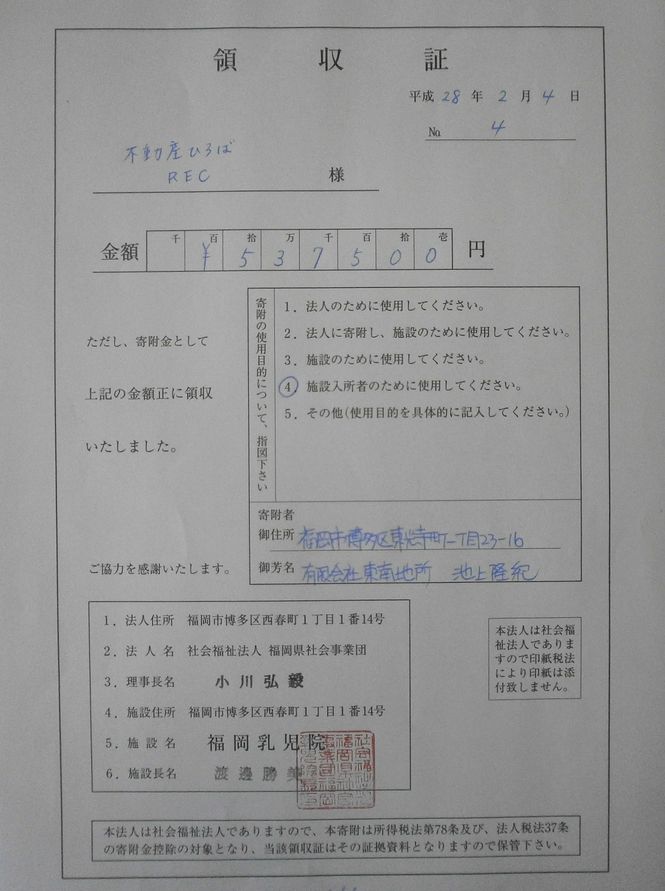 領収証
平成28年2月4日
No. 4
不動産ひろば
REC 様
千 百 拾 万 千 百 拾 壱
金額 ¥537500 円
ただし、寄附金として
上記の金額正に領収
いたしました。
ご協力を感謝いたします。
寄附の使用目的について、指図下さい
1．法人のために使用してください。
2．法人に寄附し、施設のために使用してください。
3．施設のために使用してください。
4．施設入所者のために使用してください。
5．その他(使用目的を具体的に記入してください。)
寄附者
御住所 福岡市博多区東光寺町一丁目23-16
御芳名 有限会社東南地所 池上隆紀
1．法人住所 福岡市博多区西春町1丁目1番14号
2．法人名 社会福祉法人 福岡県社会事業団
3．理事長名 小川弘毅
4．施設住所 福岡市博多区西春町1丁目1番14号
5．施設名 福岡乳児院
6．施設長名 渡邊勝美
本法人は社会福
祉法人でありま
すので印紙税法
により印紙は添
付致しません。
本法人は社会福祉法人でありますので、本寄附は所得税法第78条及び、法人税法37条
の寄附金控除の対象となり、当該領収証はその証拠資料となりますので保管下さい。